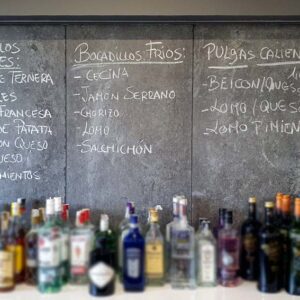 LLOS
ES:
E TERNERA
ES
FRANCESA
DE PATATA
ON QUESO
QUESO
MIENTOS
BOCADILLOS FRÍOS:
- CECINA
- JAMÓN SERRANO
- CHORIZO
- LOMO
- SALCHICHÓN
PULGAS CALIEN
- BEICON/QUES
- LOMO/QUES
- LOMO PIMIEN